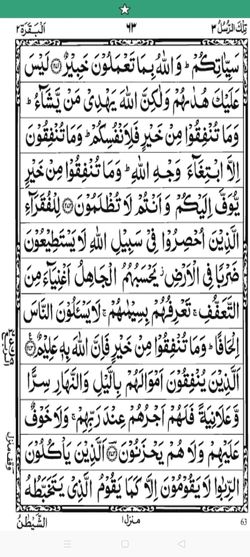 تلك الرسل ٣ ٦٣ البقرة ٢
سَيِّاٰتِكُمْ ؕ وَاللّٰهُ بِمَا تَعْمَلُوْنَ خَبِيْرٌ ﴿۲۷۱﴾ لَيْسَ
عَلَيْكَ هُدٰىهُمْ وَلٰكِنَّ اللّٰهَ يَهْدِيْ مَنْ يَّشَآءُ ؕ
وَمَا تُنْفِقُوْا مِنْ خَيْرٍ فَلِاَنْفُسِكُمْ ؕ وَمَا تُنْفِقُوْنَ
اِلَّا ابْتِغَآءَ وَجْهِ اللّٰهِ ؕ وَمَا تُنْفِقُوْا مِنْ خَيْرٍ
يُّوَفَّ اِلَيْكُمْ وَاَنْتُمْ لَا تُظْلَمُوْنَ ﴿۲۷۲﴾ لِلْفُقَرَآءِ
الَّذِيْنَ اُحْصِرُوْا فِيْ سَبِيْلِ اللّٰهِ لَا يَسْتَطِيْعُوْنَ
ضَرْبًا فِي الْاَرْضِ ؗ يَحْسَبُهُمُ الْجَاهِلُ اَغْنِيَآءَ مِنَ
التَّعَفُّفِ ۚ تَعْرِفُهُمْ بِسِيْمٰىهُمْ ۚ لَا يَسْـَٔلُوْنَ النَّاسَ
اِلْحَافًا ؕ وَمَا تُنْفِقُوْا مِنْ خَيْرٍ فَاِنَّ اللّٰهَ بِهٖ عَلِيْمٌ ﴿۲۷۳﴾
اَلَّذِيْنَ يُنْفِقُوْنَ اَمْوَالَهُمْ بِالَّيْلِ وَالنَّهَارِ سِرًّا
وَّعَلَانِيَةً فَلَهُمْ اَجْرُهُمْ عِنْدَ رَبِّهِمْ ۚ وَلَا خَوْفٌ
عَلَيْهِمْ وَلَا هُمْ يَحْزَنُوْنَ ﴿۲۷۴﴾ اَلَّذِيْنَ يَاْكُلُوْنَ
الرِّبٰوا لَا يَقُوْمُوْنَ اِلَّا كَمَا يَقُوْمُ الَّذِيْ يَتَخَبَّطُهُ
الشَّيْطٰنُ منزل ١ 63